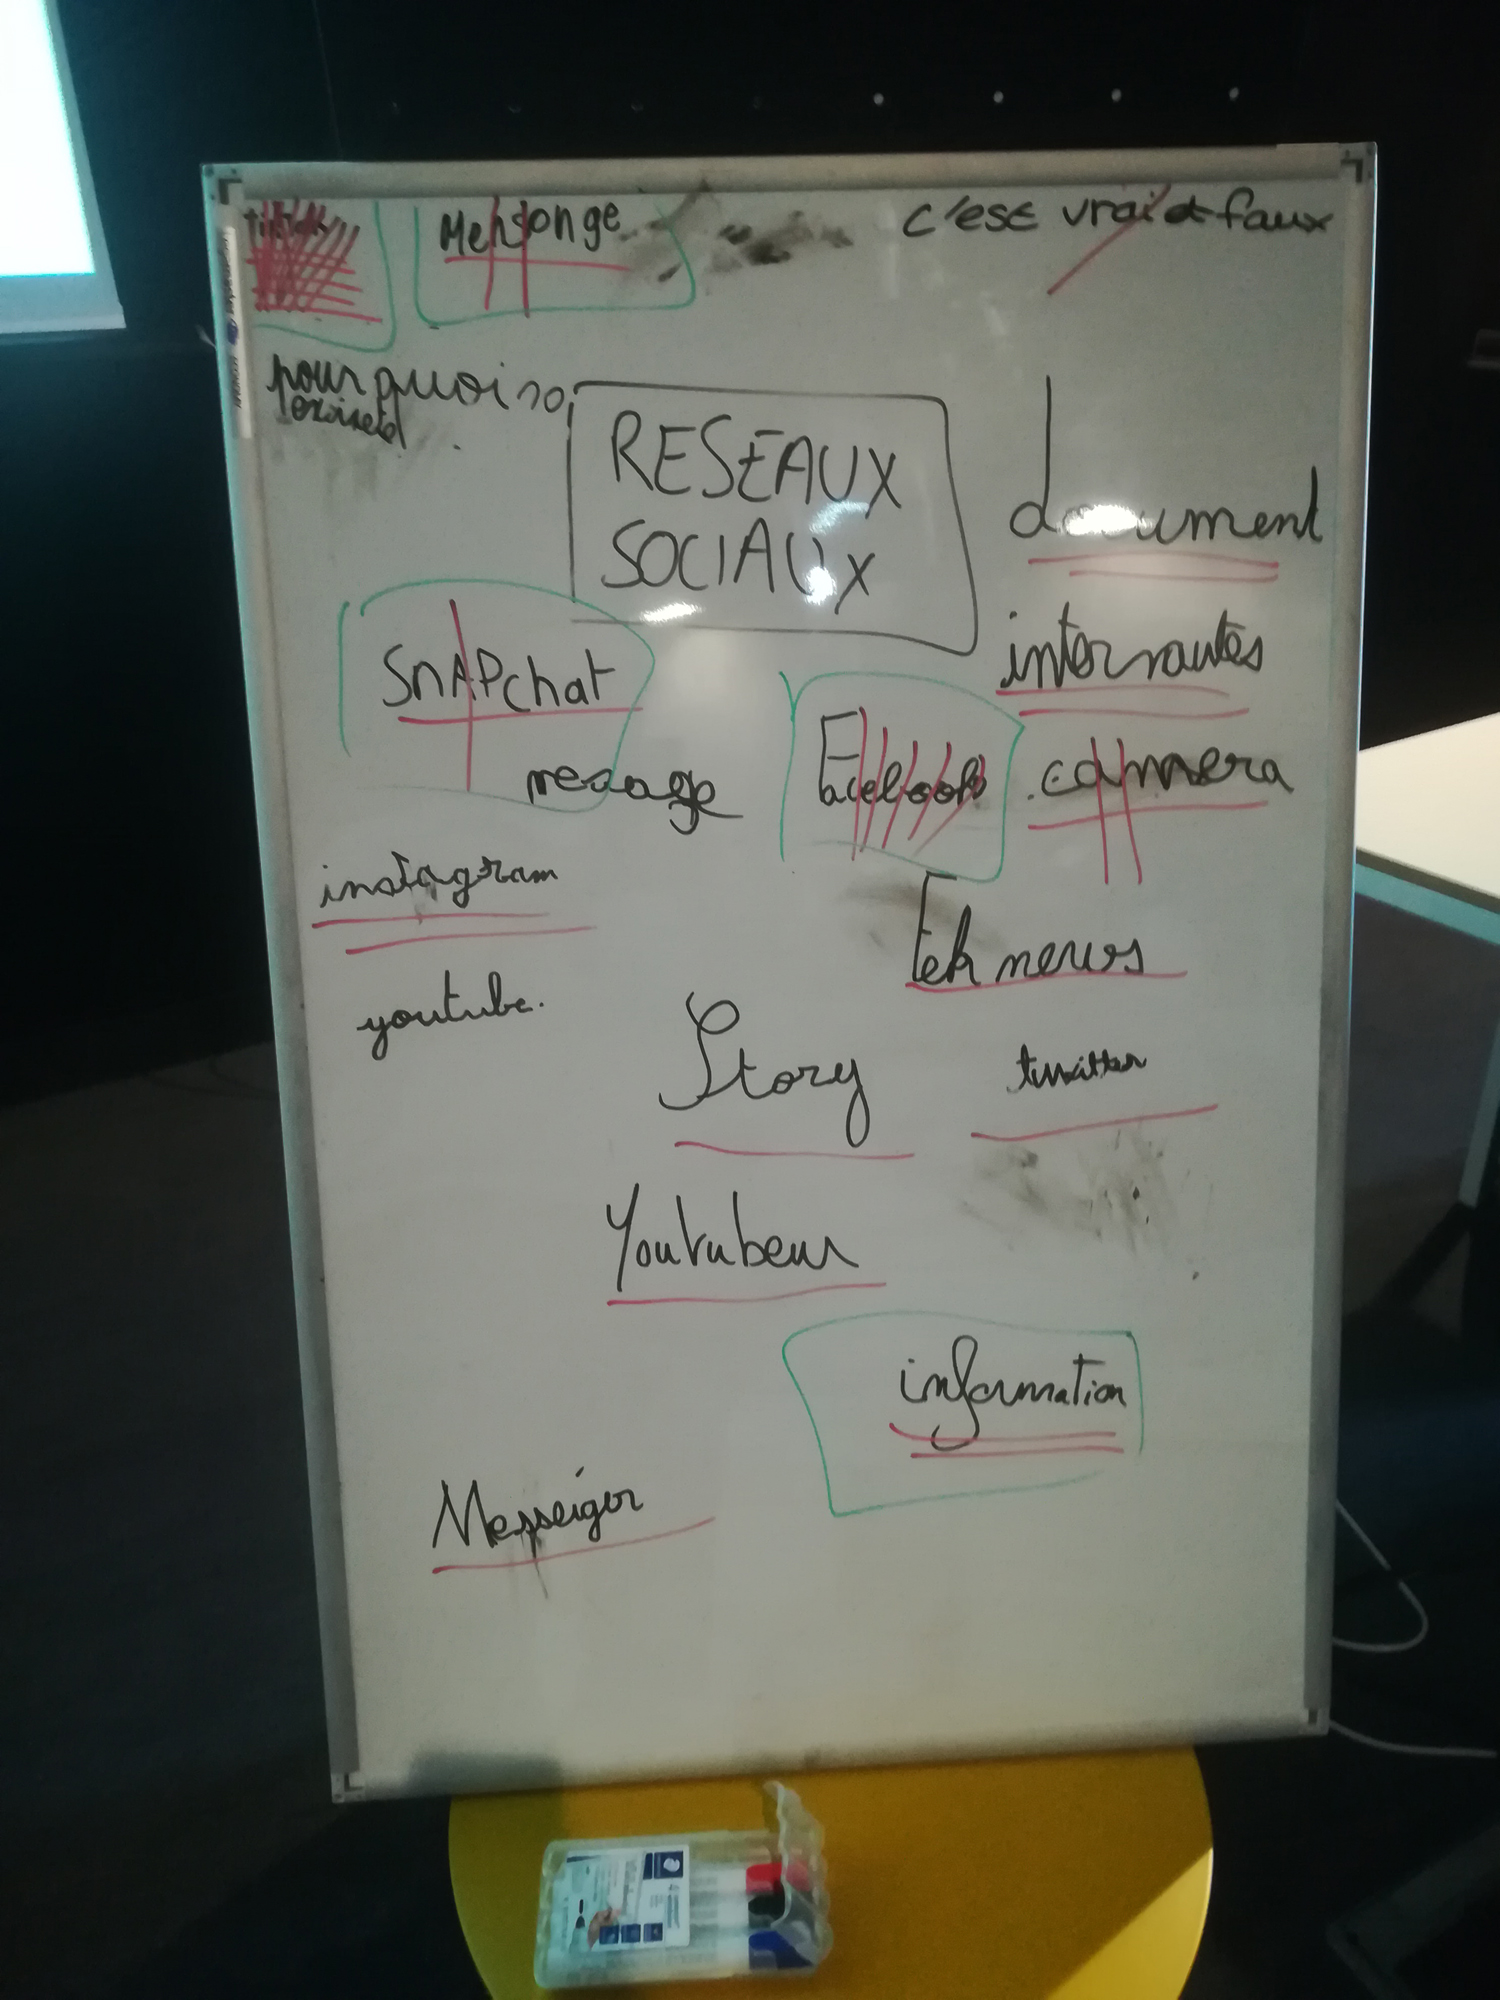 Mensonge
c'est vrai et faux
pourquoi
RESEAUX
SOCIAUX
document
internautes
SnAPchat
Facebook
camera
message
instagram
Tek news
youtube.
Story
twitter
Youtubeur
information
Messeiger